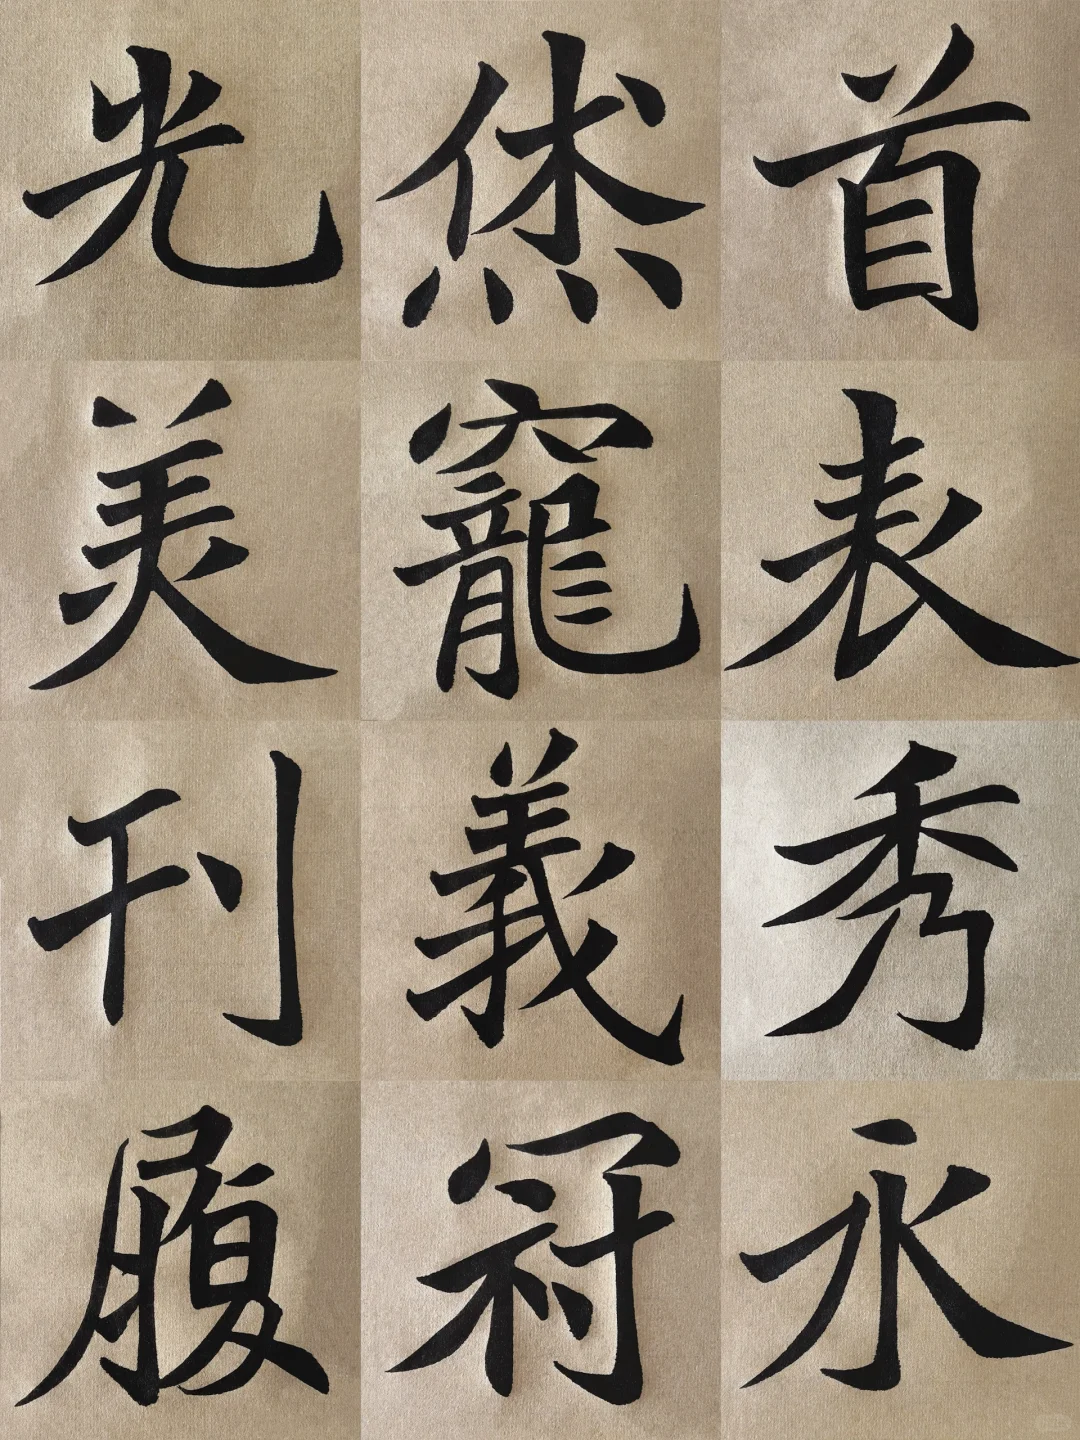 光烋首
美竉表
刊義秀
履冠永